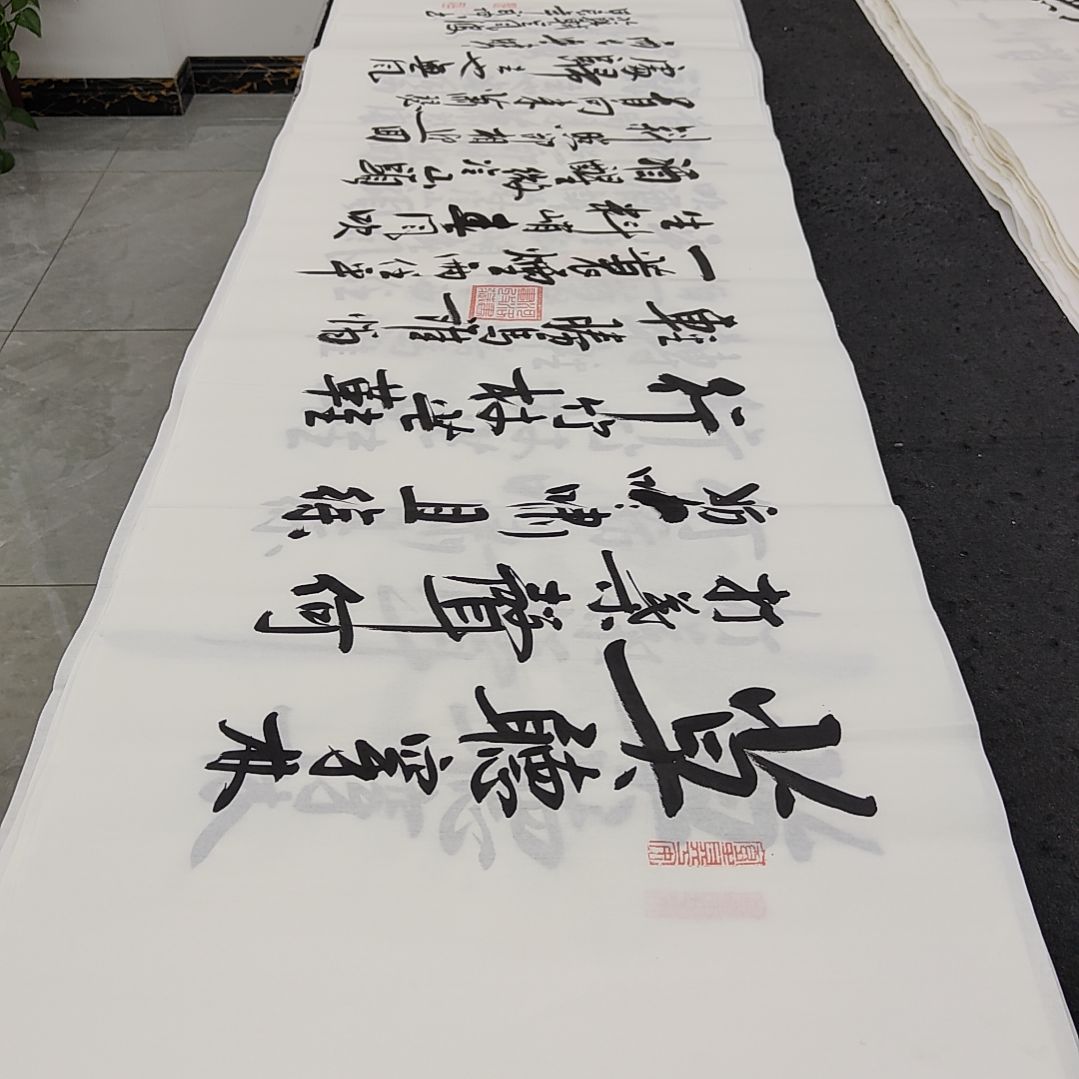 莫聽穿林
打葉聲何
妨吟嘯且徐
行竹杖芒鞋
輕勝馬誰怕
一蓑煙雨任平
生料峭春風吹
酒醒微冷山頭
斜照却相迎回
首向來蕭瑟
處歸去也無風
雨也無晴